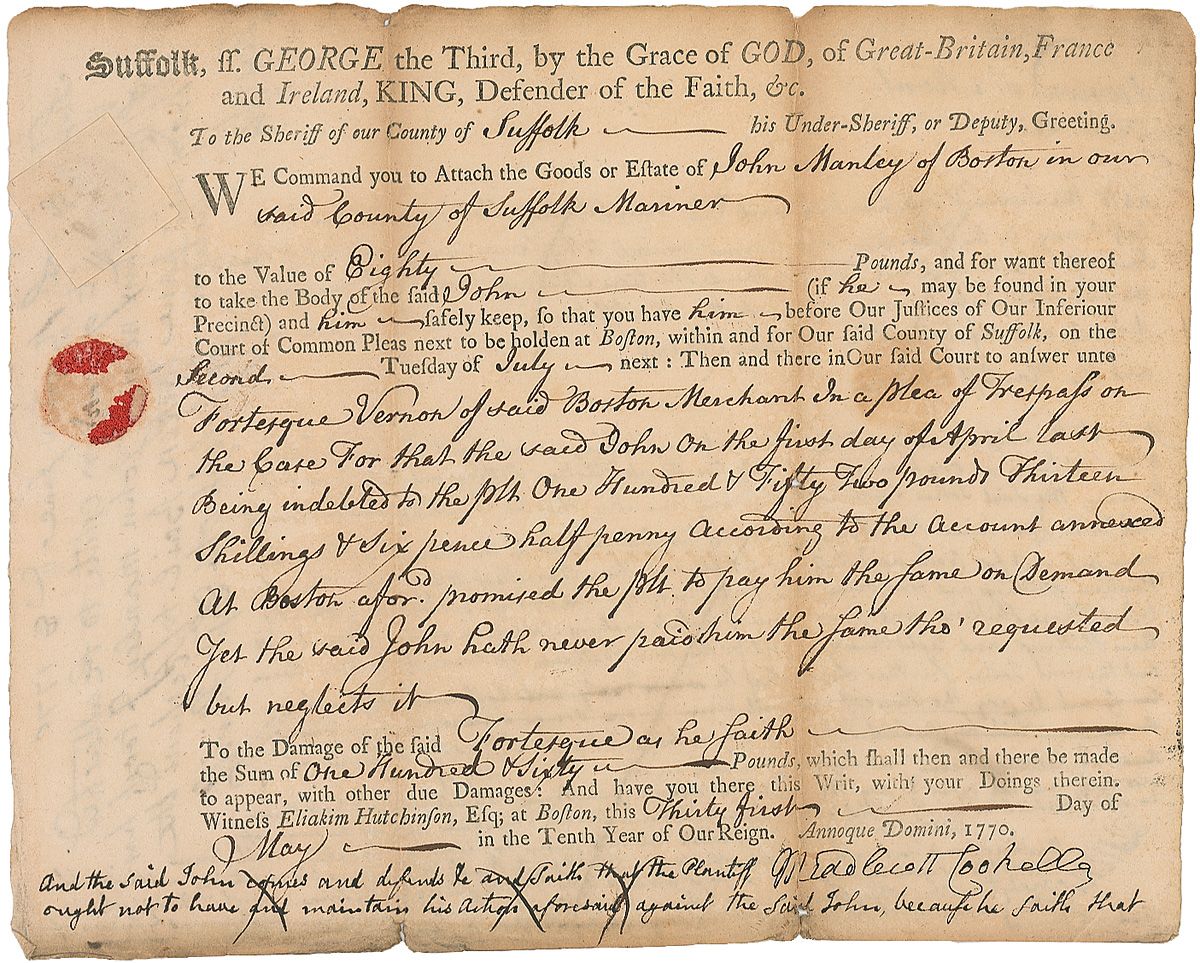 Suffolk, ſſ. GEORGE the Third, by the Grace of GOD, of Great-Britain, France
and Ireland, KING, Defender of the Faith, &c.
To the Sheriff of our County of Suffolk his Under-Sheriff, or Deputy, Greeting.
WE Command you to Attach the Goods or Eſtate of John Manley of Boston in our
said County of Suffolk Mariner
to the Value of Eighty Pounds, and for want thereof
to take the Body of the ſaid John (if he may be found in your
Precinct) and him ſafely keep, ſo that you have him before Our Juſtices of Our Inferiour
Court of Common Pleas next to be holden at Boſton, within and for Our ſaid County of Suffolk, on the
Second Tueſday of July next : Then and there in Our ſaid Court to anſwer unto
Fortesque Vernon of said Boston Merchant In a plea of Treſpaſs on
the Case For that the said John on the first day of April last
Being indebted to the plt One Hundred & Fifty Two pounds Thirteen
Shillings & Six pence half penny according to the account annexed
At Boston afor.d promised the plt. to pay him the same on Demand
Yet the said John hath never paid him the same tho' requested
but neglects it
To the Damage of the ſaid Fortesque as he saith
the Sum of One Hundred & Sixty Pounds, which ſhall then and there be made
to appear, with other due Damages: And have you there this Writ, with your Doings therein.
Witneſs Eliakim Hutchinſon, Eſq; at Boſton, this Thirty first Day of
May in the Tenth Year of Our Reign. Annoque Domini, 1770.
And the said John comes and defends &c and saith that the Plantiff
ought not to have and maintain his Action aforesaid against the said John, because he saith that